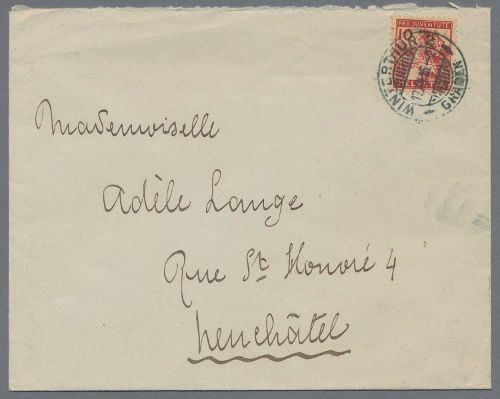 PRO JUVENTUTE
10
HELVETIA
WINTERTHUR 2
GRABEN
Mademoiselle
Adèle Lange
Rue St Honoré 4
Neuchâtel